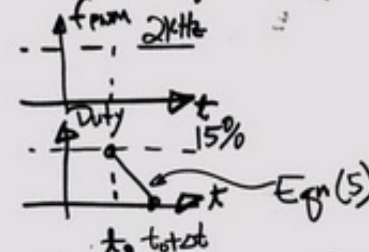 fpwm 2kHz
t
Duty
15%
t
Eqn(5)
t₀ t₀+Δt